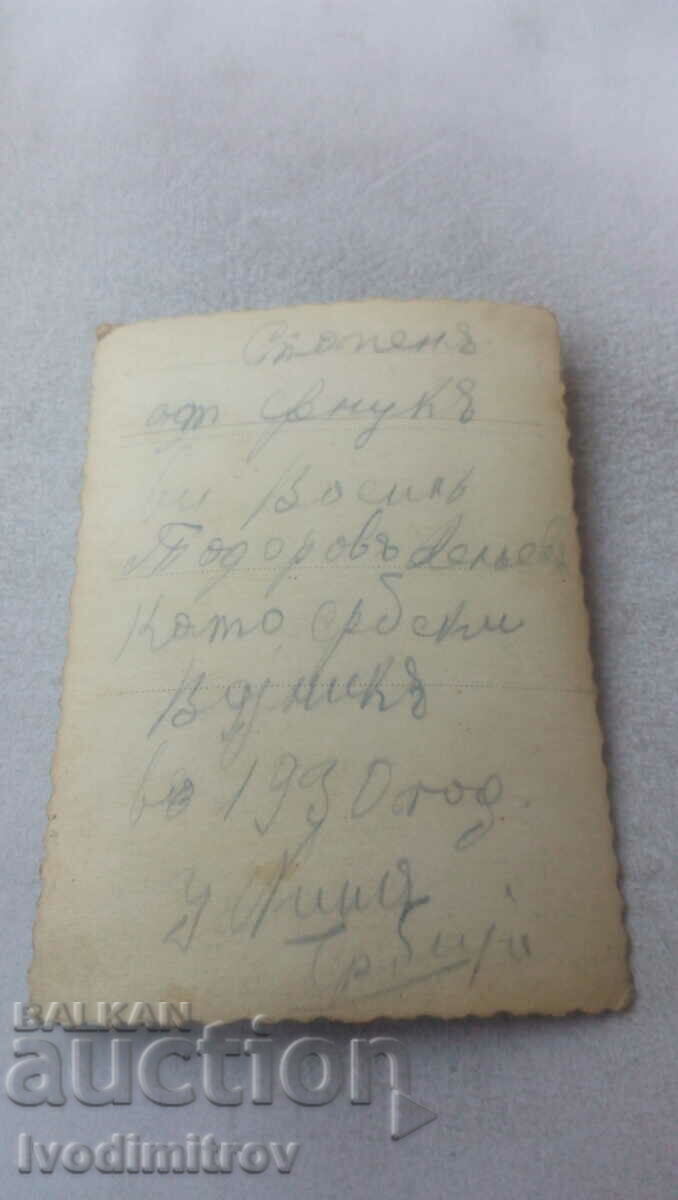 Споменъ
отъ внукъ
ви Василь
Тодоровъ
Като србски
Војникъ
въ 1930 год.
у Нишъ
Србији
BALKAN
auction
Ivodimitrov